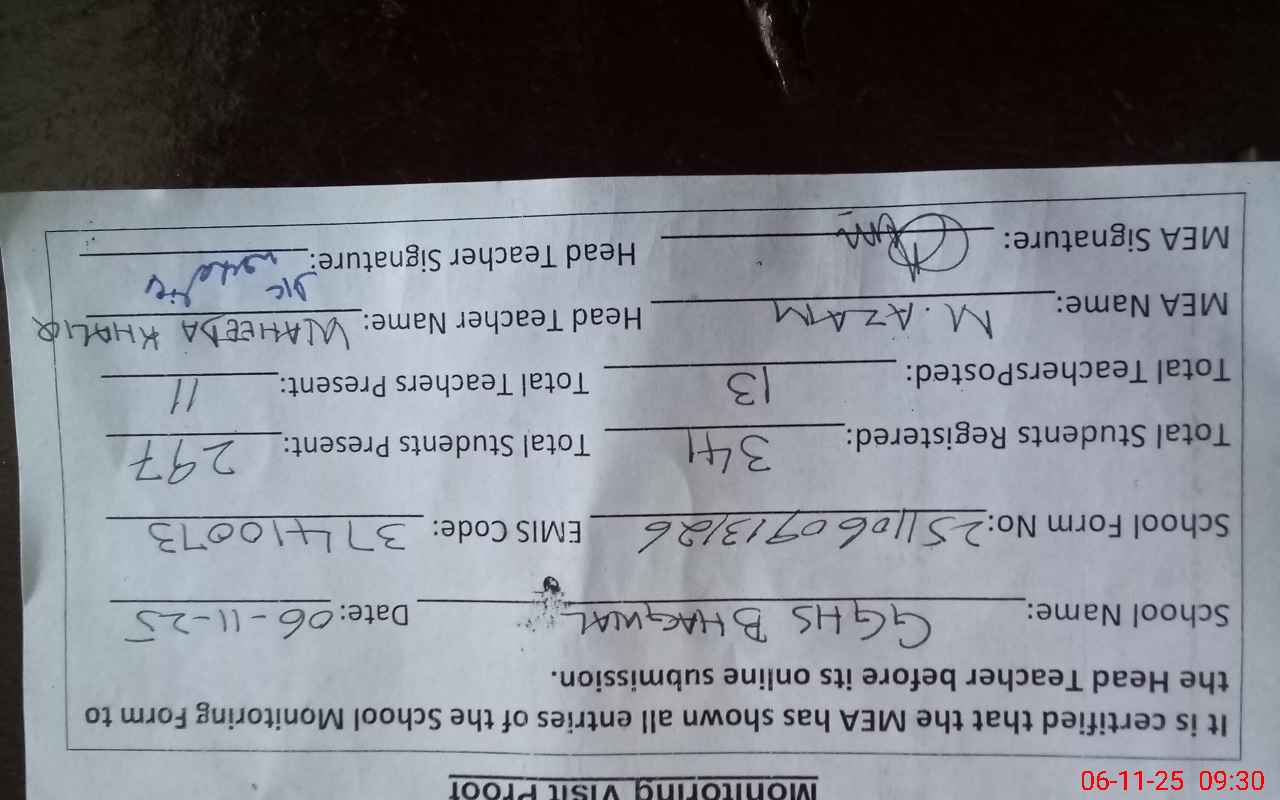 Monitoring Visit Proof
It is certified that the MEA has shown all entries of the School Monitoring Form to
the Head Teacher before its online submission.
School Name: GGHS BHAGWAL Date: 06-11-25
School Form No: 2511060913126 EMIS Code: 37410073
Total Students Registered: 341 Total Students Present: 297
Total TeachersPosted: 13 Total Teachers Present: 11
MEA Name: M. AZAM Head Teacher Name: WAHEEDA KHALIQ
MEA Signature: Head Teacher Signature:
06-11-25 09:30